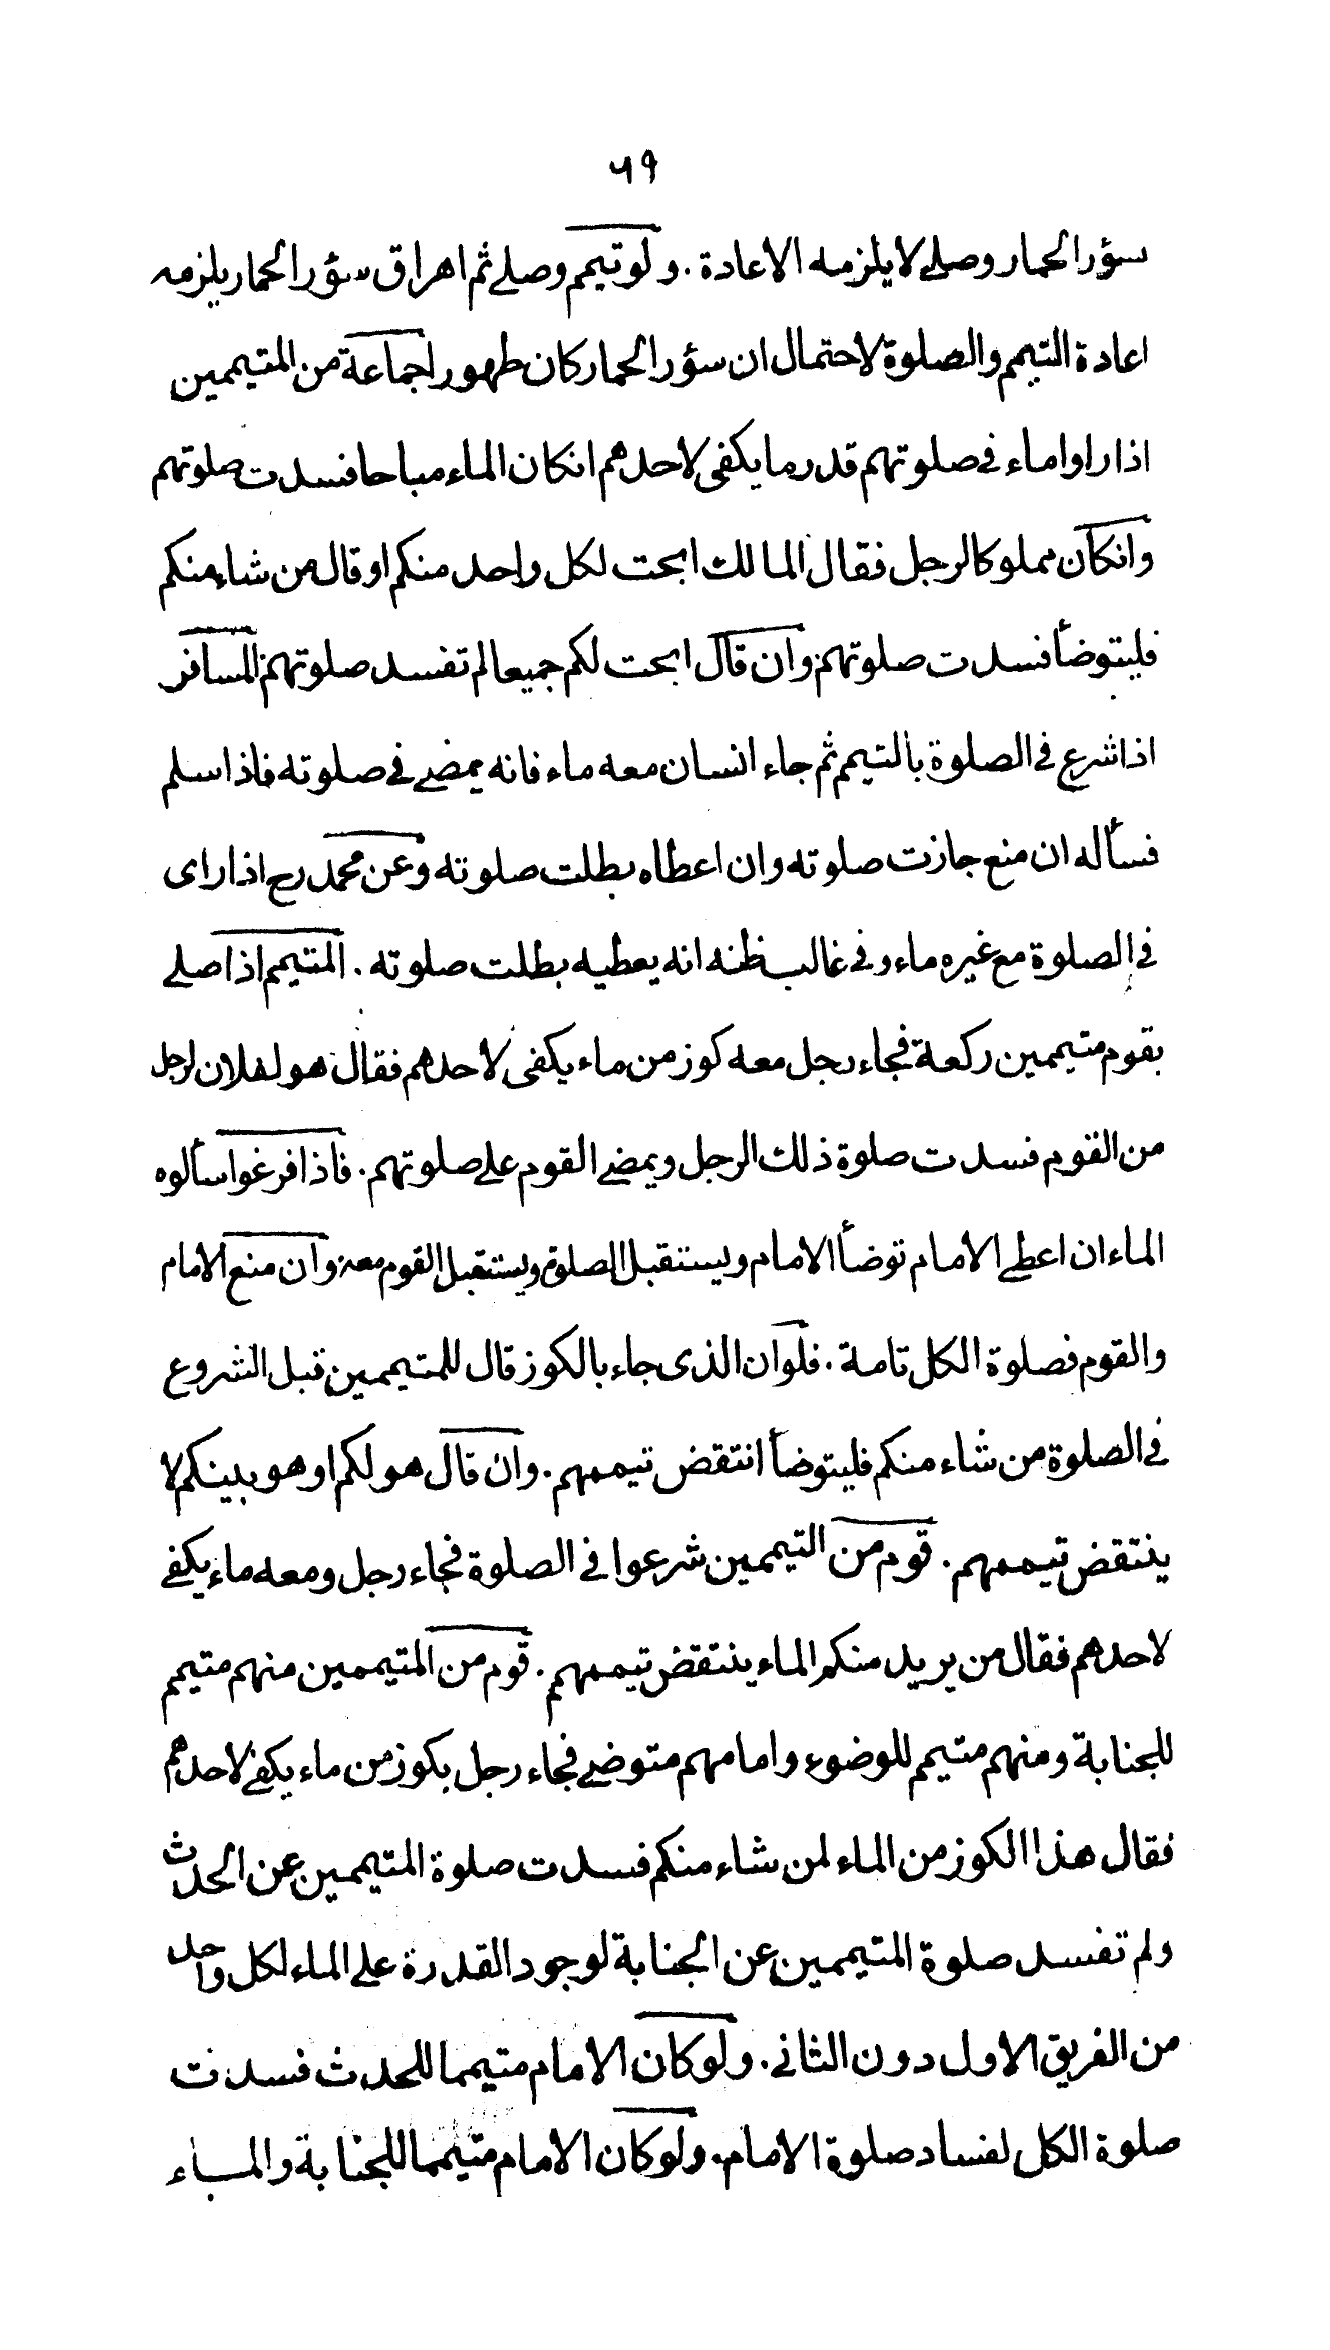 ٦٩
سؤر الحمار وصلى لا يلزمه الاعادة . ولو تيمم وصلى ثم اهراق سؤر الحمار يلزمه
اعادة التيمم والصلوة لاحتمال ان سؤر الحمار كان طهورا جماعة من المتيممين
اذا راوا ماء فى صلوتهم قدر ما يكفى لاحدهم انكان الماء مباحا فسدت صلوتهم
وانكان مملوكا لرجل فقال المالك ابحت لكل واحد منكم او قال من شاء منكم
فليتوضأ فسدت صلوتهم وان قال ابحت لكم جميعا لم تفسد صلوتهم المسافر
اذا شرع فى الصلوة بالتيمم ثم جاء انسان معه ماء فانه يمضى فى صلوته فاذا سلم
فسأله ان منع جازت صلوته وان اعطاه بطلت صلوته وعن محمد رح اذا راى
فى الصلوة مع غيره ماء وفى غالب ظنه انه يعطيه بطلت صلوته . المتيمم اذا صلى
بقوم متيممين ركعة فجاء رجل معه كوز من ماء يكفى لاحدهم فقال هو لفلان لرجل
من القوم فسدت صلوة ذلك الرجل ويمضى القوم على صلوتهم . فاذا فرغوا سألوه
الماء ان اعطى الامام توضأ الامام ويستقبل الصلوة ويستقبل القوم معه وان منع الامام
والقوم فصلوة الكل تامة . فلو ان الذى جاء بالكوز قال للمتيممين قبل الشروع
فى الصلوة من شاء منكم فليتوضأ انتقض تيممهم . وان قال هو لكم او هو بينكم لا
ينتقض تيممهم . قوم من التيممين شرعوا فى الصلوة فجاء رجل ومعه ماء يكفى
لاحدهم فقال من يريد منكم الماء ينتقض تيممهم . قوم من المتيممين منهم متيمم
للجنابة ومنهم متيمم للوضوء وامامهم متوضى فجاء رجل بكوز من ماء يكفى لاحدهم
فقال هذا الكوز من الماء لمن شاء منكم فسدت صلوة المتيممين عن الحدث
ولم تفسد صلوة المتيممين عن الجنابة لوجود القدرة على الماء لكل واحد
من الفريق الاول دون الثانى . ولو كان الامام متيمما للحدث فسدت
صلوة الكل لفساد صلوة الامام . ولو كان الامام متيمما للجنابة والماء